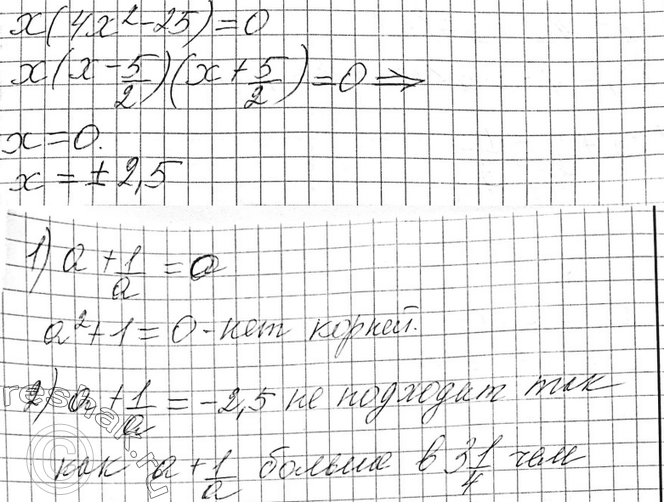 x(4x²-25)=0
x(x-5/2)(x+5/2)=0 ⇒
x=0.
x=±2,5
1) a+1/a=0
a²+1=0-нет корней.
2) a+1/a=-2,5 не подходит так
как a+1/a больше в 3 1/4 чем